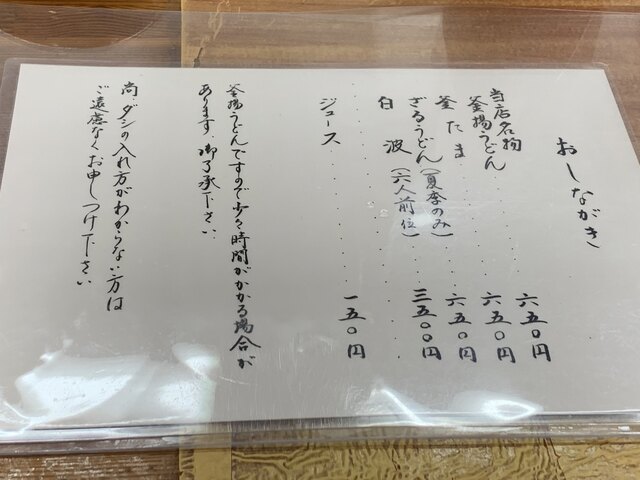 おしながき
当店名物
釜揚うどん 六五〇円
釜たま 六五〇円
ざるうどん(夏季のみ) 六五〇円
白波(六人前位) 三五〇〇円
ジュース 一五〇円
釜揚うどんですので少々時間がかかる場合が
あります。御了承下さい。
尚、ダシの入れ方がわからない方は
ご遠慮なくお申しつけ下さい